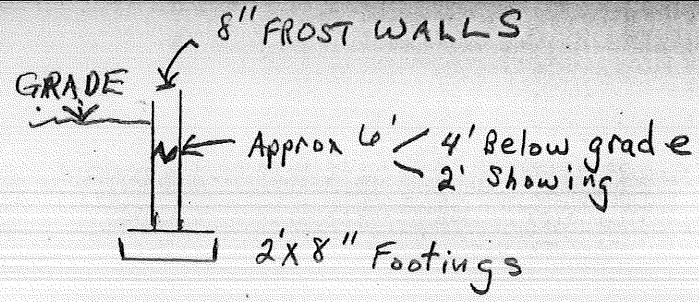 8" FROST WALLS
GRADE
Approx 6' 4' Below grade
2' Showing
2'x8" Footings